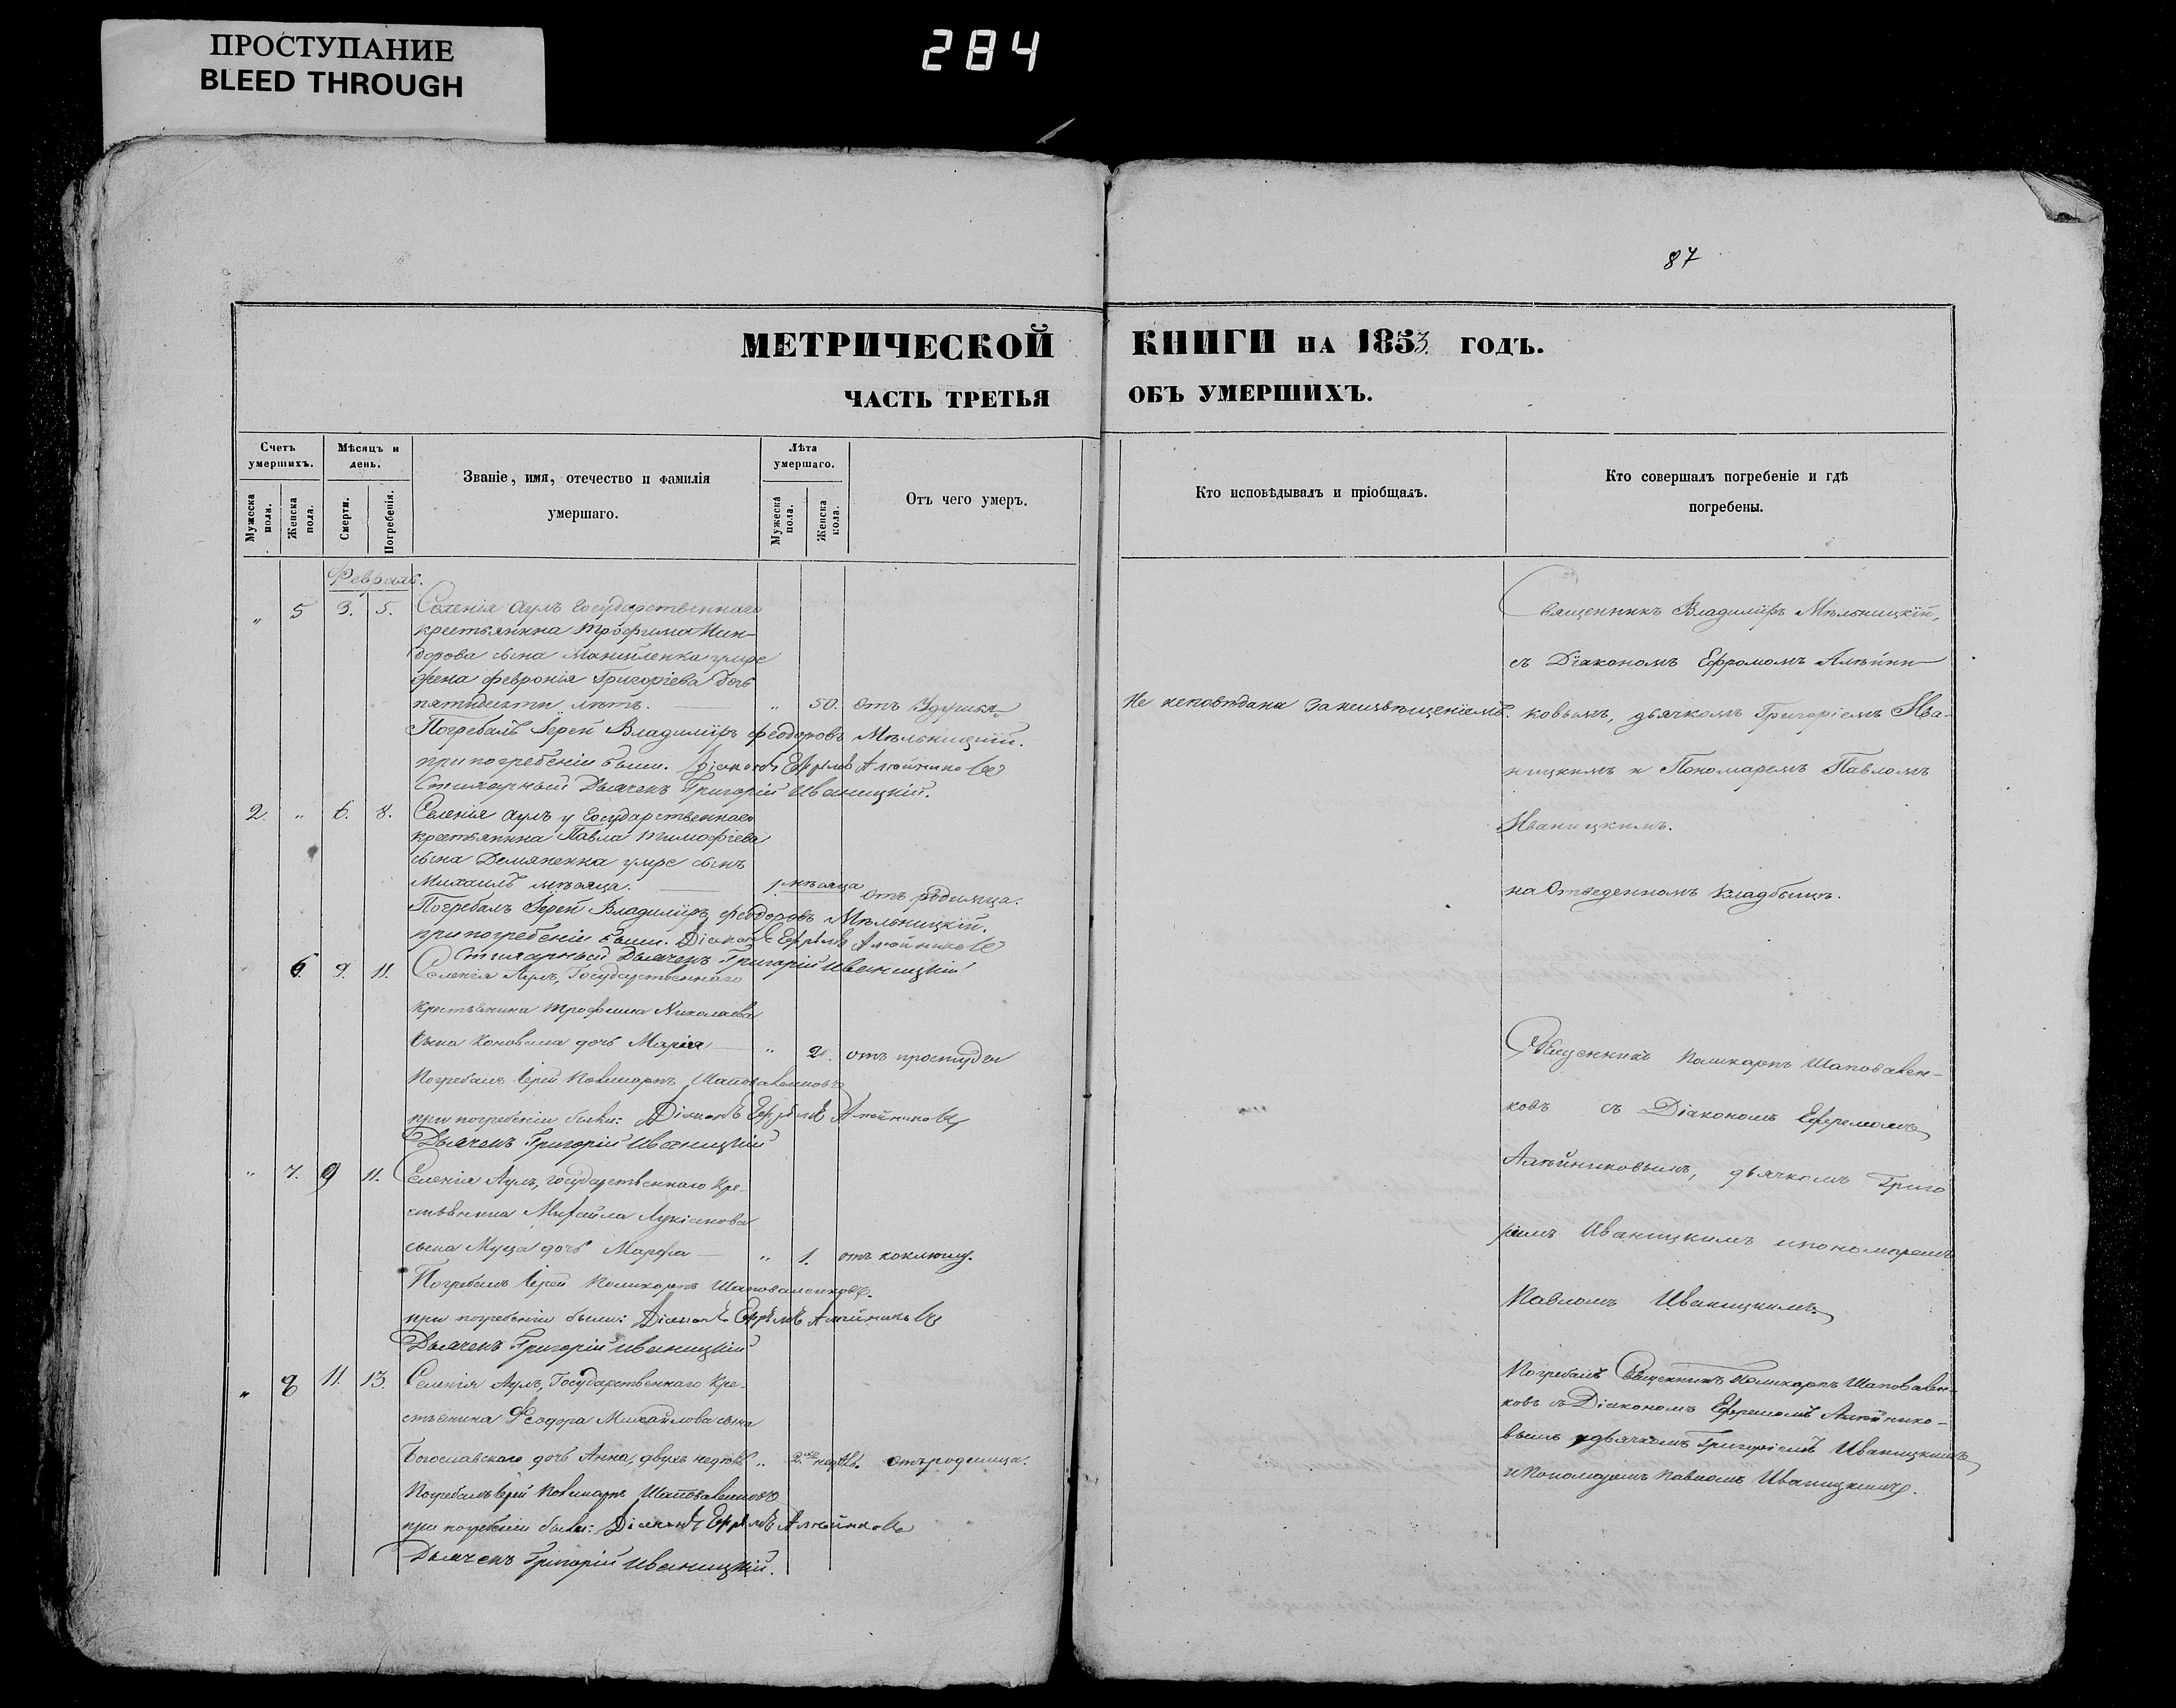 ПРОСТУПАНИЕ
BLEED THROUGH
284
87
МЕТРИЧЕСКОЙ КНИГИ НА 1853. ГОДЪ.
ЧАСТЬ ТРЕТЬЯ ОБЪ УМЕРШИХЪ.
Счетъ умершихъ.
Мужеска полн.
Женска пола.
Мѣсяцъ и день.
Смерти.
Погребенія.
Званіе, имя, отечество и фамилія
умершаго.
Лѣта умершаго.
Мужеска пола.
Женска пола.
Отъ чего умеръ.
Кто исповѣдывалъ и пріобщалъ.
Кто совершалъ погребеніе и гдѣ
погребены.
Февраль.
„ 5 3. 5. Селенія Аулъ Государственнаго
крестьянина Трофима
сына умре
жена Февронія Григоріева дочь
пятидесяти лѣтъ. — „ 50. отъ Удушья
Погребалъ Іерей Владиміръ Феодоровъ Мѣльницкій.
при погребеніи были. Діаконъ Ефремъ Алейниковъ
Стихарный Дьячекъ Григорій Иваницкій.
Не исповѣдана
Священникъ Владиміръ Мѣльницкій,
съ Діакономъ Ефремомъ Алѣйни-
ковымъ, дьячкомъ Григоріемъ Ива-
ницкимъ и Пономаремъ Павломъ
Иваницкимъ.
на Отведенномъ кладбищѣ.
2. „ 6. 8. Селенія Аулъ у Государственнаго
крестьянина Павла Тимофіева
сына Демяненка умре сынъ
Михаилъ мѣсяца. — 1. мѣсяца отъ родимца.
Погребалъ Іерей Владиміръ Феодоровъ Мѣльницкій.
при погребеніи были. Діаконъ Ефремъ Алейниковъ
Стихарный Дьячекъ Григорій Иваницкій
6. 9. 11. Селенія Аулъ, Государственнаго
крестьянина Трофима Николаева
сына Коновала дочь Марія — „ 2. отъ простуды
Погребалъ Іерей Поликарпъ Шаповаленковъ
при погребеніи были: Діаконъ Ефремъ Алейниковъ
Дьячекъ Григорій Иваницкій
Священникъ Поликарпъ Шаповален-
ковъ съ Діакономъ Ефремомъ
Алѣйниковымъ, дьячкомъ Григо
ріемъ Иваницкимъ и пономаремъ
Павломъ Иваницкимъ
„ 7. 9 11. Селенія Аулъ, государственнаго кре-
стьянина Михайла Лукіанова
сына Муца дочь Марфа — „ 1. отъ коклюшу.
Погребалъ Іерей Поликарпъ Шаповаленковъ.
при погребеніи были: Діаконъ Ефремъ Алейниковъ
Дьячекъ Григорій Иваницкій
„ 8 11. 13. Селенія Аулъ, Государственнаго Кре-
стьянина Феодора Михайлова сына
Богославскаго дочь Анна двухъ недѣль „ 2. недѣль. отъ родимца.
Погребалъ Іерей Поликарпъ Шаповаленковъ
при погребеніи были: Діаконъ Ефремъ Алейниковъ
Дьячекъ Григорій Иваницкій.
Погребалъ Священникъ Поликарпъ Шаповален-
ковъ съ Діакономъ Ефремомъ Алѣйнико-
вымъ дьячкомъ Григоріемъ Иваницкимъ
и Пономаремъ Павломъ Иваницкимъ.